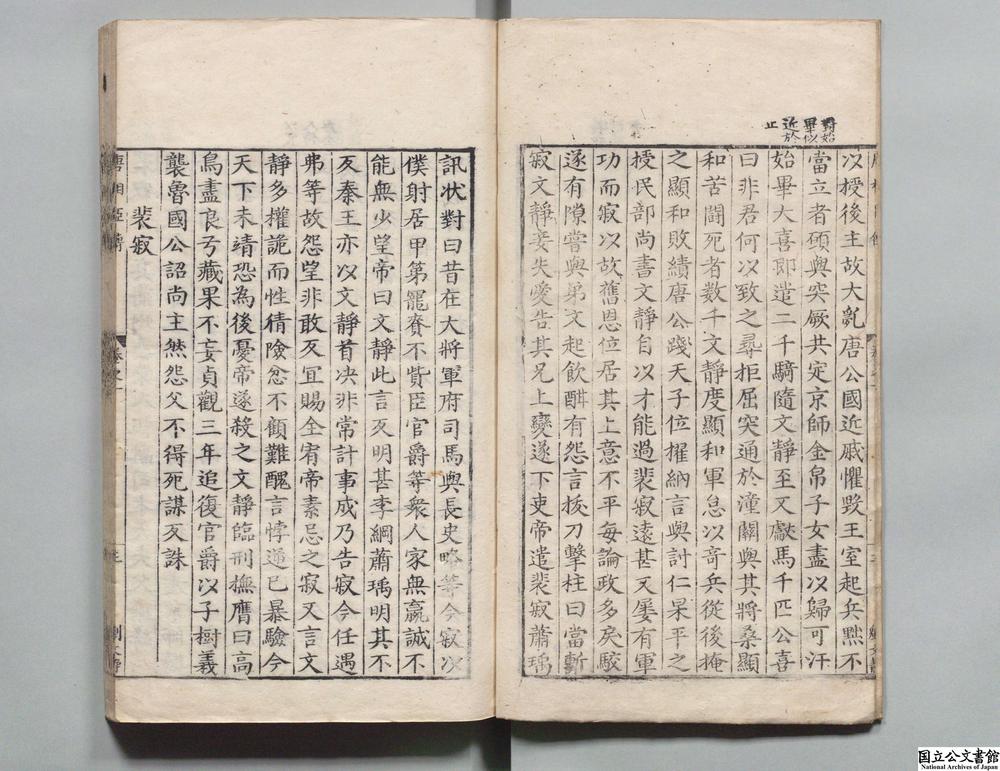 對始
畢似
近於
止
以授後主故大亂唐公國近戚懼毀王室起兵黜不
當立者碩與突厥共定京師金帛子女盡以歸可汗
始畢大喜即遣二千騎隨文靜至又獻馬千匹公喜
曰非君何以致之尋拒屈突通於潼關與其將桑顯
和苦鬪死者数千文靜度顯和軍怠以奇兵從後掩
之顯和敗績唐公踐天子位擢納言與討仁杲平之
授民部尚書文靜自以才能過裴寂遠甚又屢有軍
功而寂以故舊恩位居其上意不平每論政多戾駮
遂有隙嘗與弟文起飲酣有怨言拔刀擊柱曰當斬
寂文靜妾失愛告其兄上變遂下吏帝遣裴寂蕭瑀
訊状對曰昔在大將軍府司馬與長史略等今寂以
僕射居甲第寵賚不貲臣官爵等衆人家無贏誠不
能無少望帝曰文靜此言反明甚李綱蕭瑀明其不
反秦王亦以文靜首决非常計事成乃告寂今任遇
弗等故怨望非敢反宜賜全宥帝素忌之寂又言文
靜多權詭而性猜險忿不顧難醜言悖逆已暴驗今
天下未靖恐為後憂帝遂殺之文靜臨刑撫膺曰高
鳥盡良弓藏果不妄貞觀三年追復官爵以子樹義
襲魯國公詔尚主然怨父不得死謀反誅
裴寂
国立公文書館
National Archives of Japan